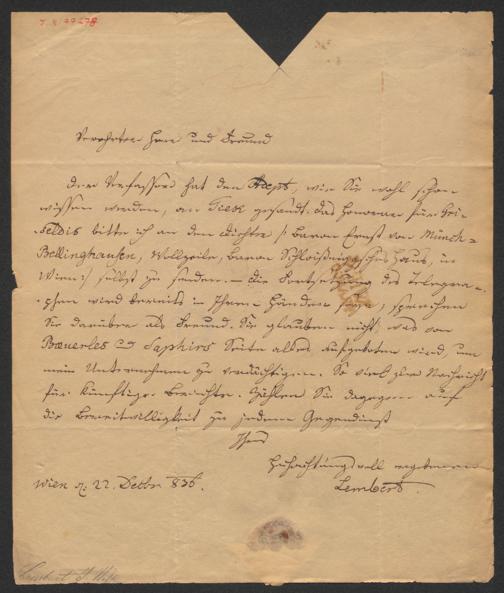 Verehrter Herr und Freund
Der Verfasser hat den Adept, wie Sie wohl schon
wissen werden, an Tieck gesandt. das Honorar für Gri-
seldis bitte ich an den Dichter /: Baron Ernst von Münch-
Bellinghausen, Wollzeile, Baron Schloißnigg'sches Haus, in
Wien :/ selbst zu senden. – die Fortsetzung des Telegra-
phen wird bereits in Ihren Händen sein, sprechen
Sie darüber als Freund. Sie glauben nicht, was von
Bäuerles Saphirs Seite alles aufgeboten wird, um
mein Unternehmen zu verdächtigen. So viel zur Nachricht
für künftige Berichte. Zählen Sie dagegen auf
die Bereitwilligkeit zu jedem Gegendienst
Ihres
hochachtungsvoll ergebenen
Wien 22. Dectbr 836. Lembert.